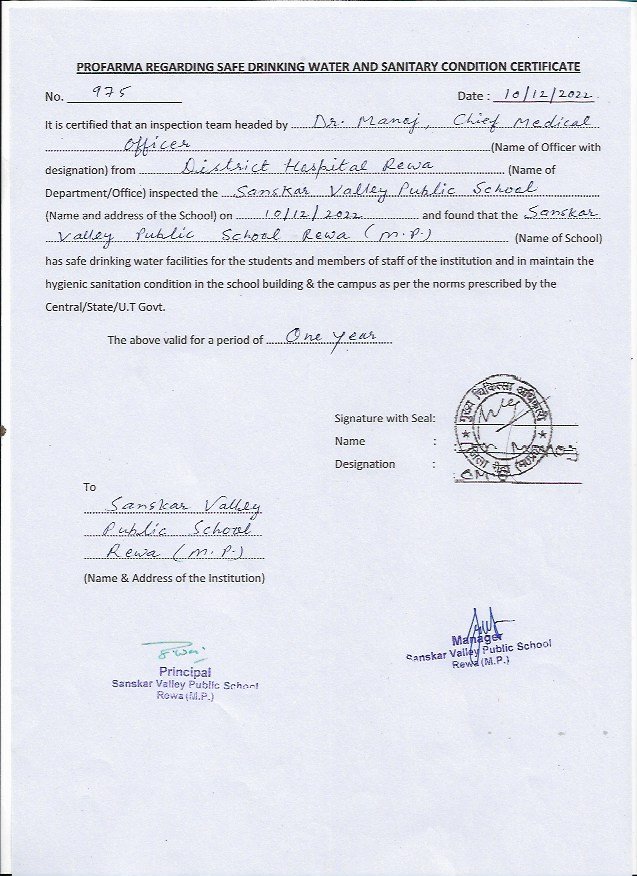 PROFARMA REGARDING SAFE DRINKING WATER AND SANITARY CONDITION CERTIFICATE
No. 975 Date : 10/12/2022
It is certified that an inspection team headed by Dr. Manoj, Chief Medical
Officer (Name of Officer with
designation) from District Hospital Rewa (Name of
Department/Office) inspected the Sanskar Valley Public School
(Name and address of the School) on 10/12/2022 and found that the Sanskar
Valley Public School Rewa (M.P.) (Name of School)
has safe drinking water facilities for the students and members of staff of the institution and in maintain the
hygienic sanitation condition in the school building & the campus as per the norms prescribed by the
Central/State/U.T Govt.
The above valid for a period of One Year
Signature with Seal:
मुख्य चिकित्सा अधिकारी
Name : Dr. Manoj
जिला रीवा (म०प्र०)
Designation : CMO
To
Sanskar Valley
Public School
Rewa (M.P.)
(Name & Address of the Institution)
Principal
Sanskar Valley Public School
Rewa (M.P.)
Manager
Sanskar Valley Public School
Rewa (M.P.)